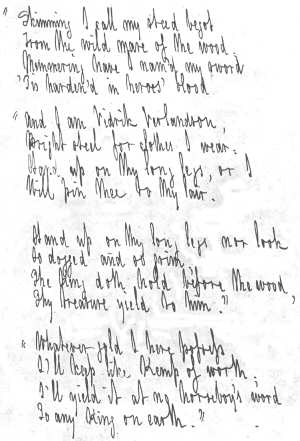 "Skimming I call my steed begot
From the wild mare of the wood
Mimmering have I nam'd my sword
'Tis harden'd in heroes' blood

"And I am Vidrik Verlandson,
Bright steel for clothes I wear:
Stand up on thy long legs, or I
Will pin thee to thy lair.

Stand up on thy long legs nor look
So dogged and so grim;
The King doth hold before the wood,
Thy treasure yield to him."

"Whatever gold I here possess
I'll keep like Kemp of worth;
I'll yield it at no horseboy's word
To any King on earth."